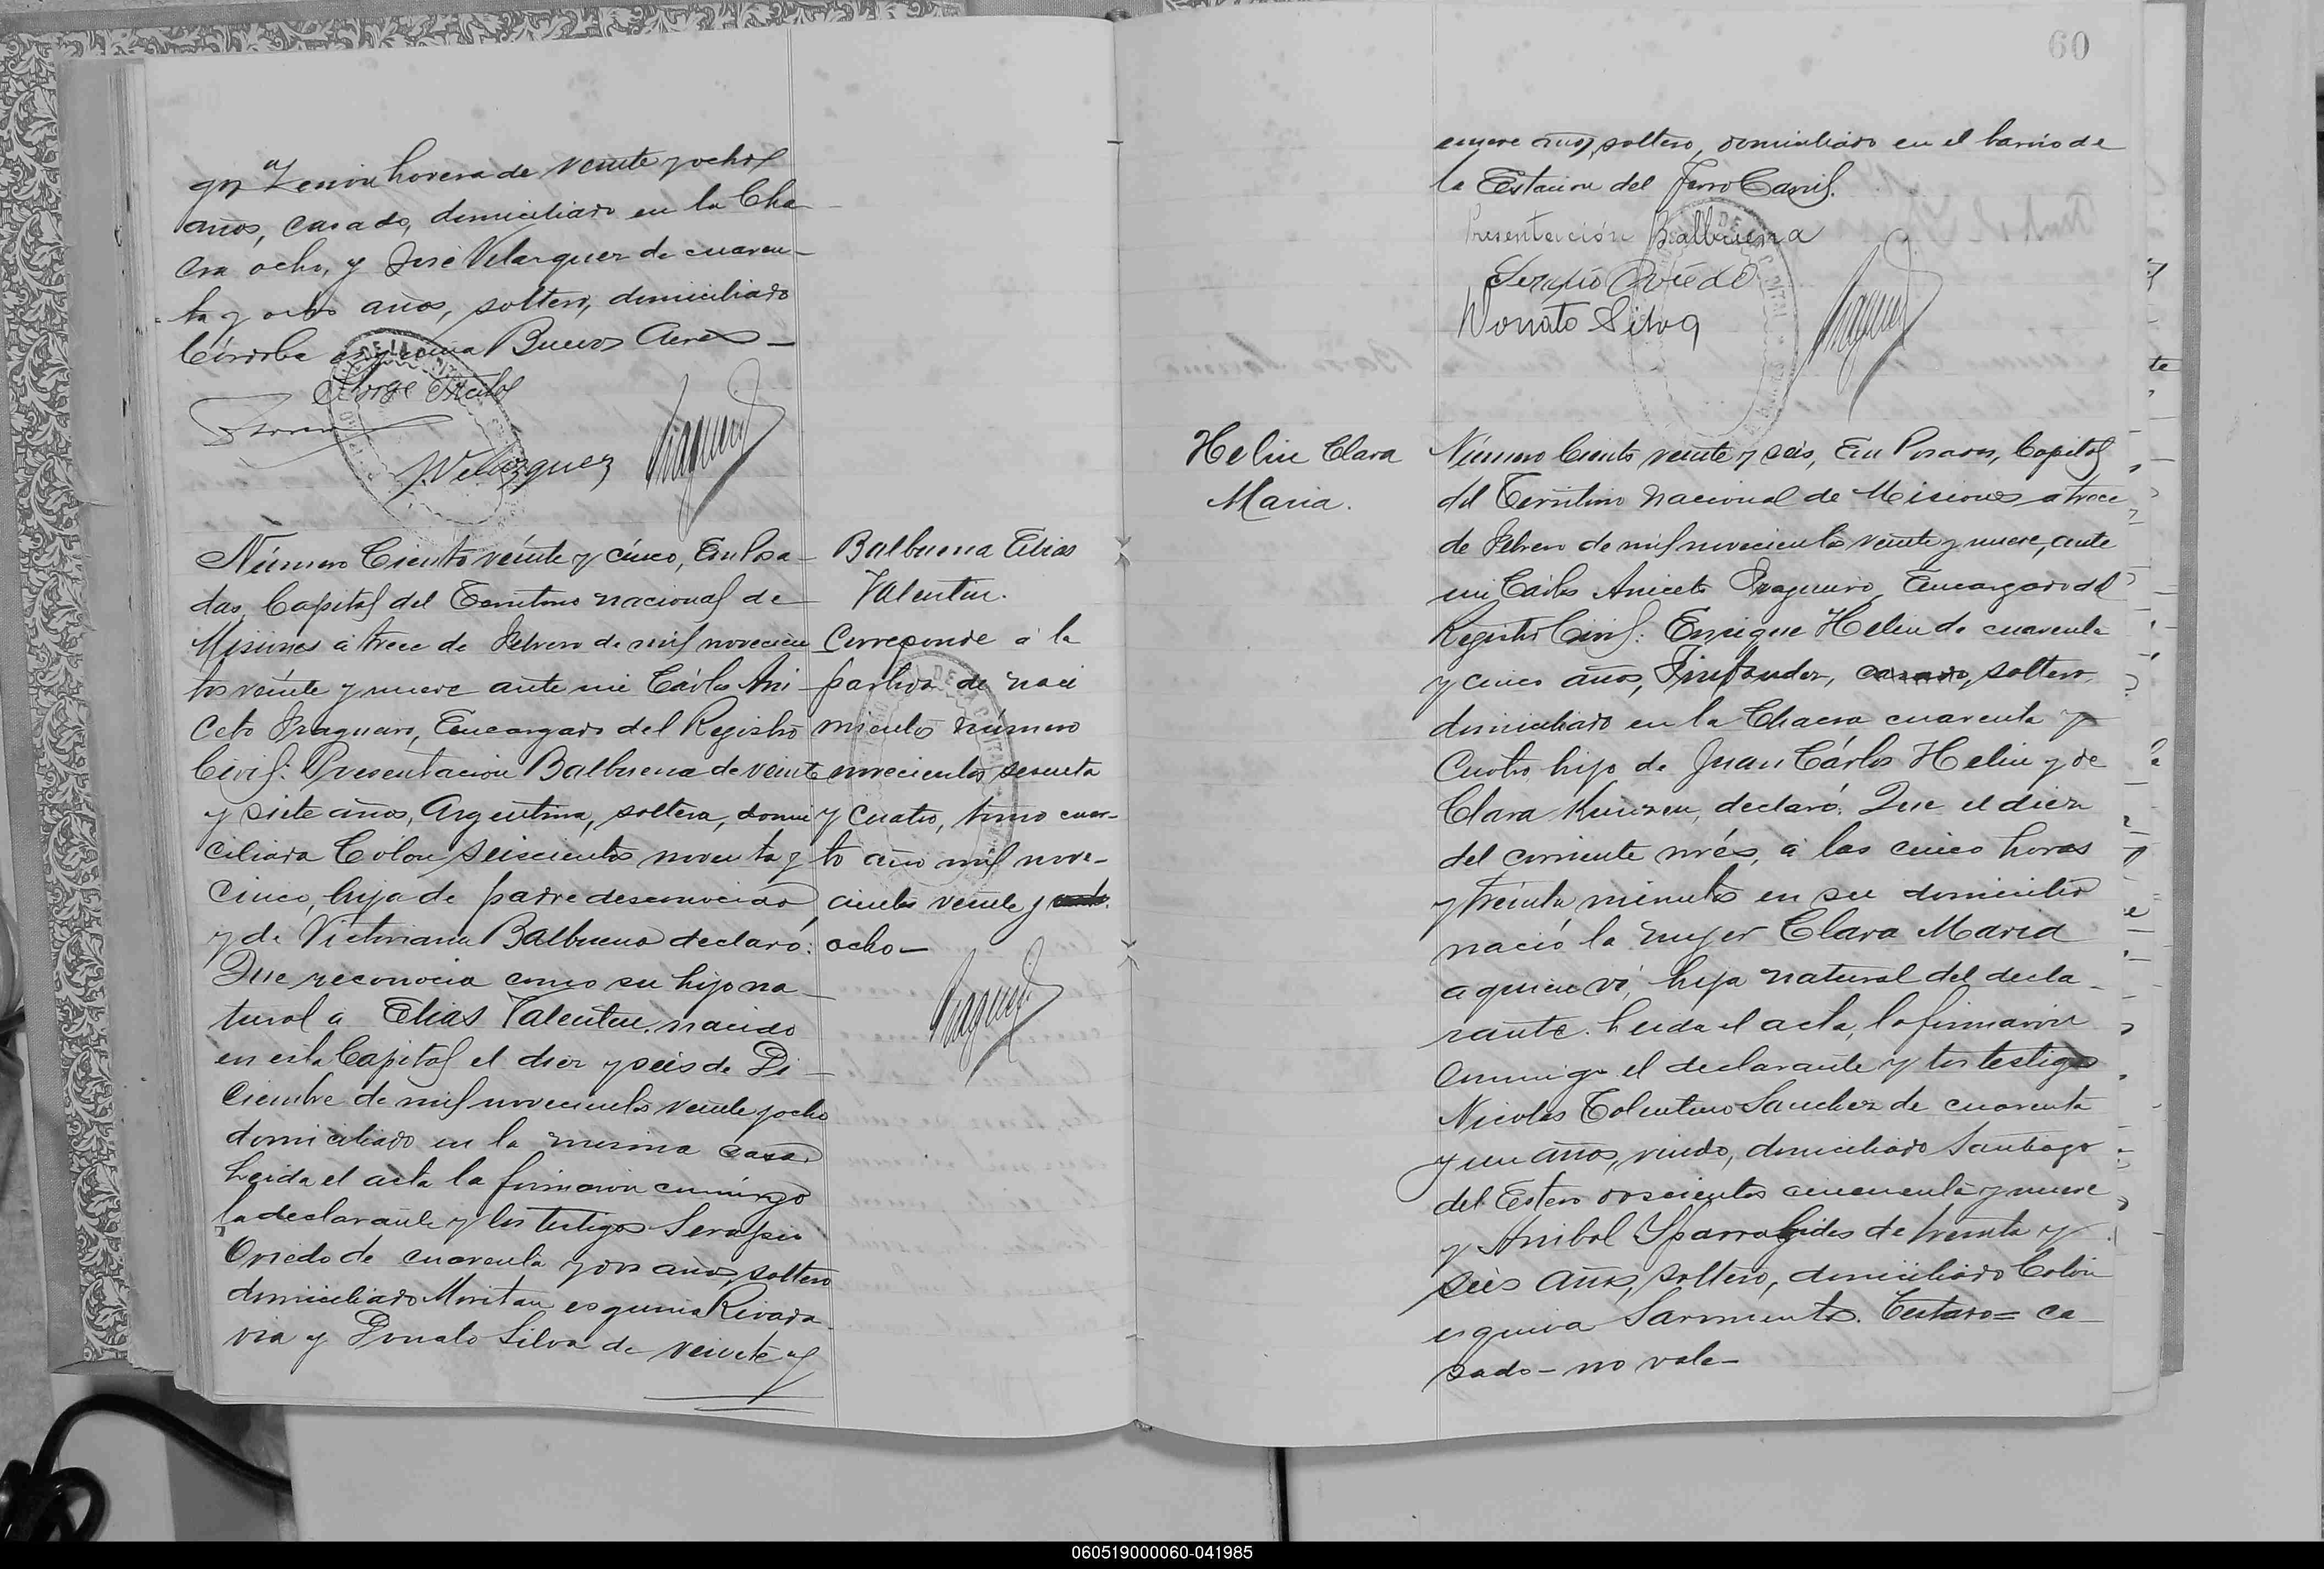 y Zenon Lovera de veinte y ocho
años, casado, domiciliado en la Cha
cra ocho, y José Velazquez de cuaren-
ta y ocho años, soltero, domiciliado
Córdoba esquina Buenos Aires—
Jorge
J. Velázquez
Número Ciento veinte y cinco, En Posa-
das, Capital del Territorio Nacional de
Misiones á trece de Febrero de mil novecien
tos veinte y nueve ante mi Cárlos Ani-
ceto Encargado del Registro
Civil: Presentacion Balbuena de veinte
y siete años, Argentina, soltera, domi
ciliada Colon seiscientos noventa y
cinco, hija de padre desconocido
y de Victoriana Balbuena declaró:
Que reconocia como su hijo na-
tural a Elias Valentin, nacido
en esta Capital el diez y seis de Di-
ciembre de mil novecientos veinte y ocho
domiciliado en la misma casa.
Leida el acta la firmaron conmigo
la declarante y los testigos Serapio
Oviedo de cuarenta y dos años, soltero
domiciliado esquina Rivada-
via y Donato Silva de veinte y
Balbuena Elias
Valentin.
Corresponde á la
partida de naci
miento número
novecientos sesenta
y cuatro, tomo cuar-
to año mil nove-
cientos veinte y
ocho—
60
nueve años, soltero, domiciliado en el barrio de
la Estacion del Ferro Carril.
Presentación Balbuena
Serapio Oviedo
Donato Silva
Helin Clara
Maria.
Número Ciento veinte y seis, En Posadas, Capital
del Territorio Nacional de Misiones a trece
de Febrero de mil novecientos veinte y nueve, ante
mi Cárlos Aniceto Encargado del
Registro Civil: Enrique Helin de cuarenta
y cinco años, casado, soltero,
domiciliado en la Chacra cuarenta y
cuatro hijo de Juan Cárlos Helin y de
Clara declaró: Que el diez
del corriente més, á las cinco horas
y treinta minutos en su domicilio
nació la mujer Clara Maria
a quien ví, hija natural del decla-
rante. Leida el acta, la firmaron
conmigo el declarante y los testigos
Nicolas Tolentino Sanchez de cuarenta
y un años, viudo, domiciliado Santiago
del Estero doscientos cincuenta y nueve
y Anibal de treinta y
seis años, soltero, domiciliado Colón
esquina Sarmiento. Testado= ca-
sado—no vale—
060519000060-041985